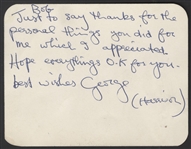 Bob
Just to say thanks for the
personal things you did for
me which I appreciated
Hope everythings O.K for you.
best wishes George
(Harrison)